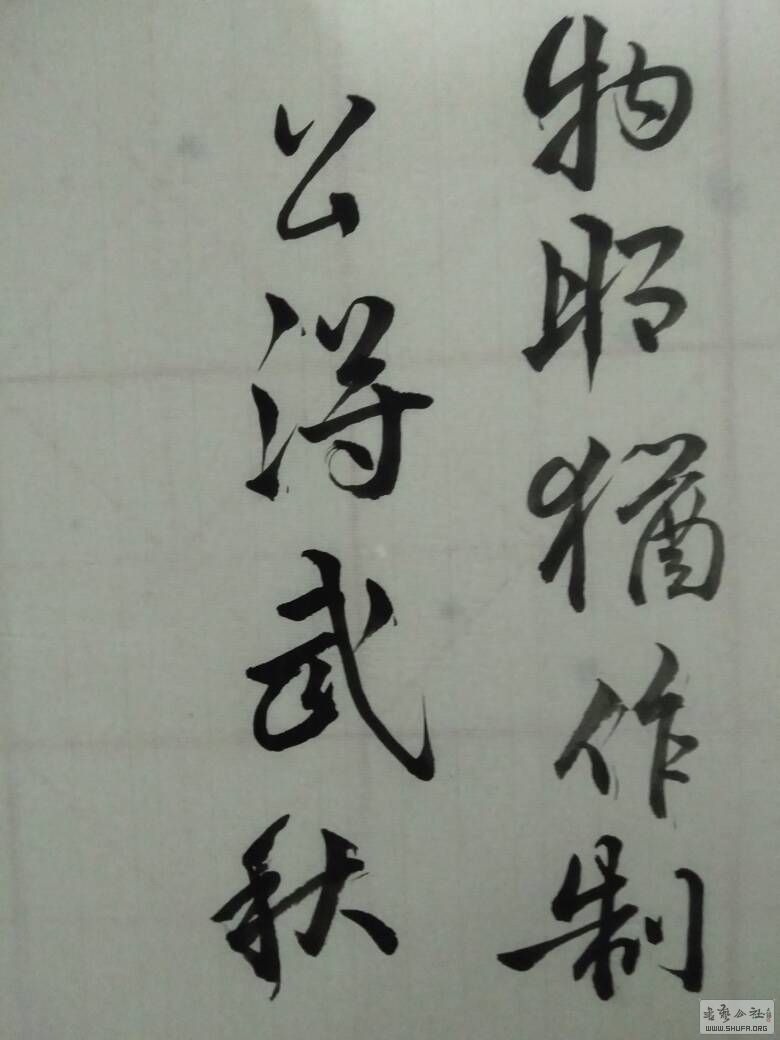 物昭猶作制
公得武秋
书艺公社
WWW.SHUFA.ORG